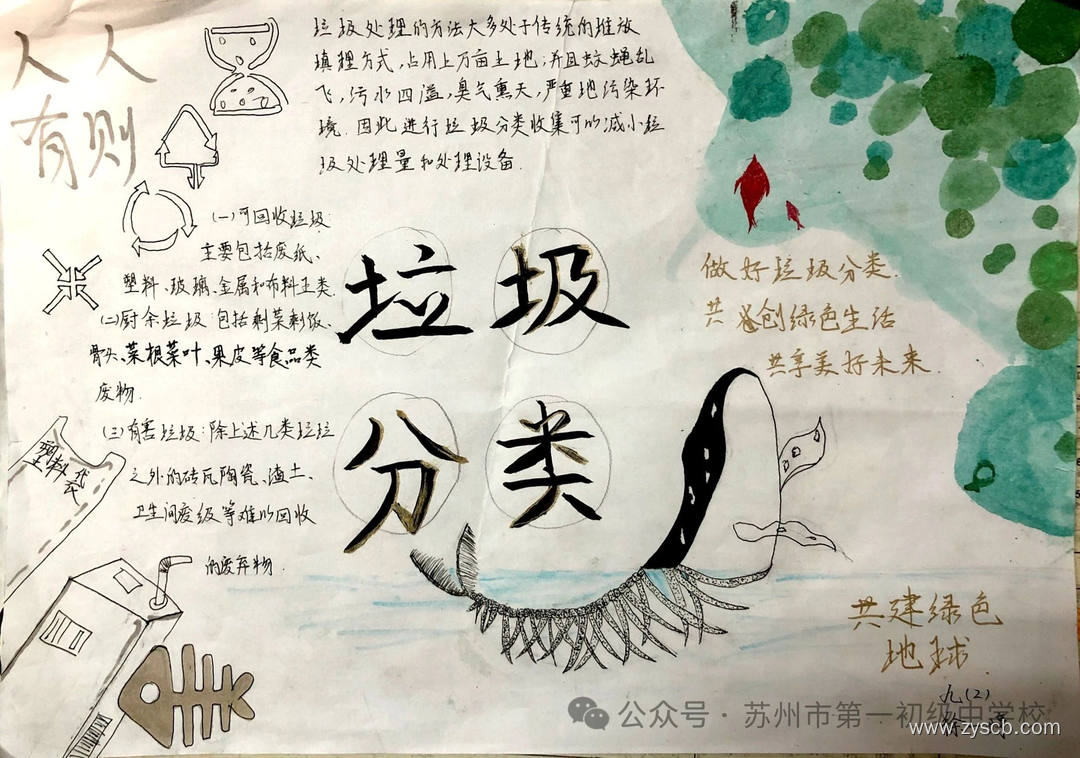 人人
有则
垃圾处理的方法大多处于传统的堆放
填埋方式，占用上万亩土地；并且蚊蝇乱
飞，污水四溢，臭气熏天，严重地污染环
境．因此进行垃圾分类收集可以减小垃
圾处理量和处理设备．
(一)可回收垃圾：
主要包括废纸、
塑料、玻璃、金属和布料五类．
(二)厨余垃圾：包括剩菜剩饭、
骨头、菜根菜叶、果皮等食品类
废物．
(三)有害垃圾：除上述几类垃圾
之外的砖瓦陶瓷、渣土、
卫生间废纸等难以回收
的废弃物．
塑料代
垃圾
分类
做好垃圾分类．
共创绿色生活
共享美好未来．
共建绿色
地球
九(2)
公众号·苏州市第一初级中学校
www.zyscb.com